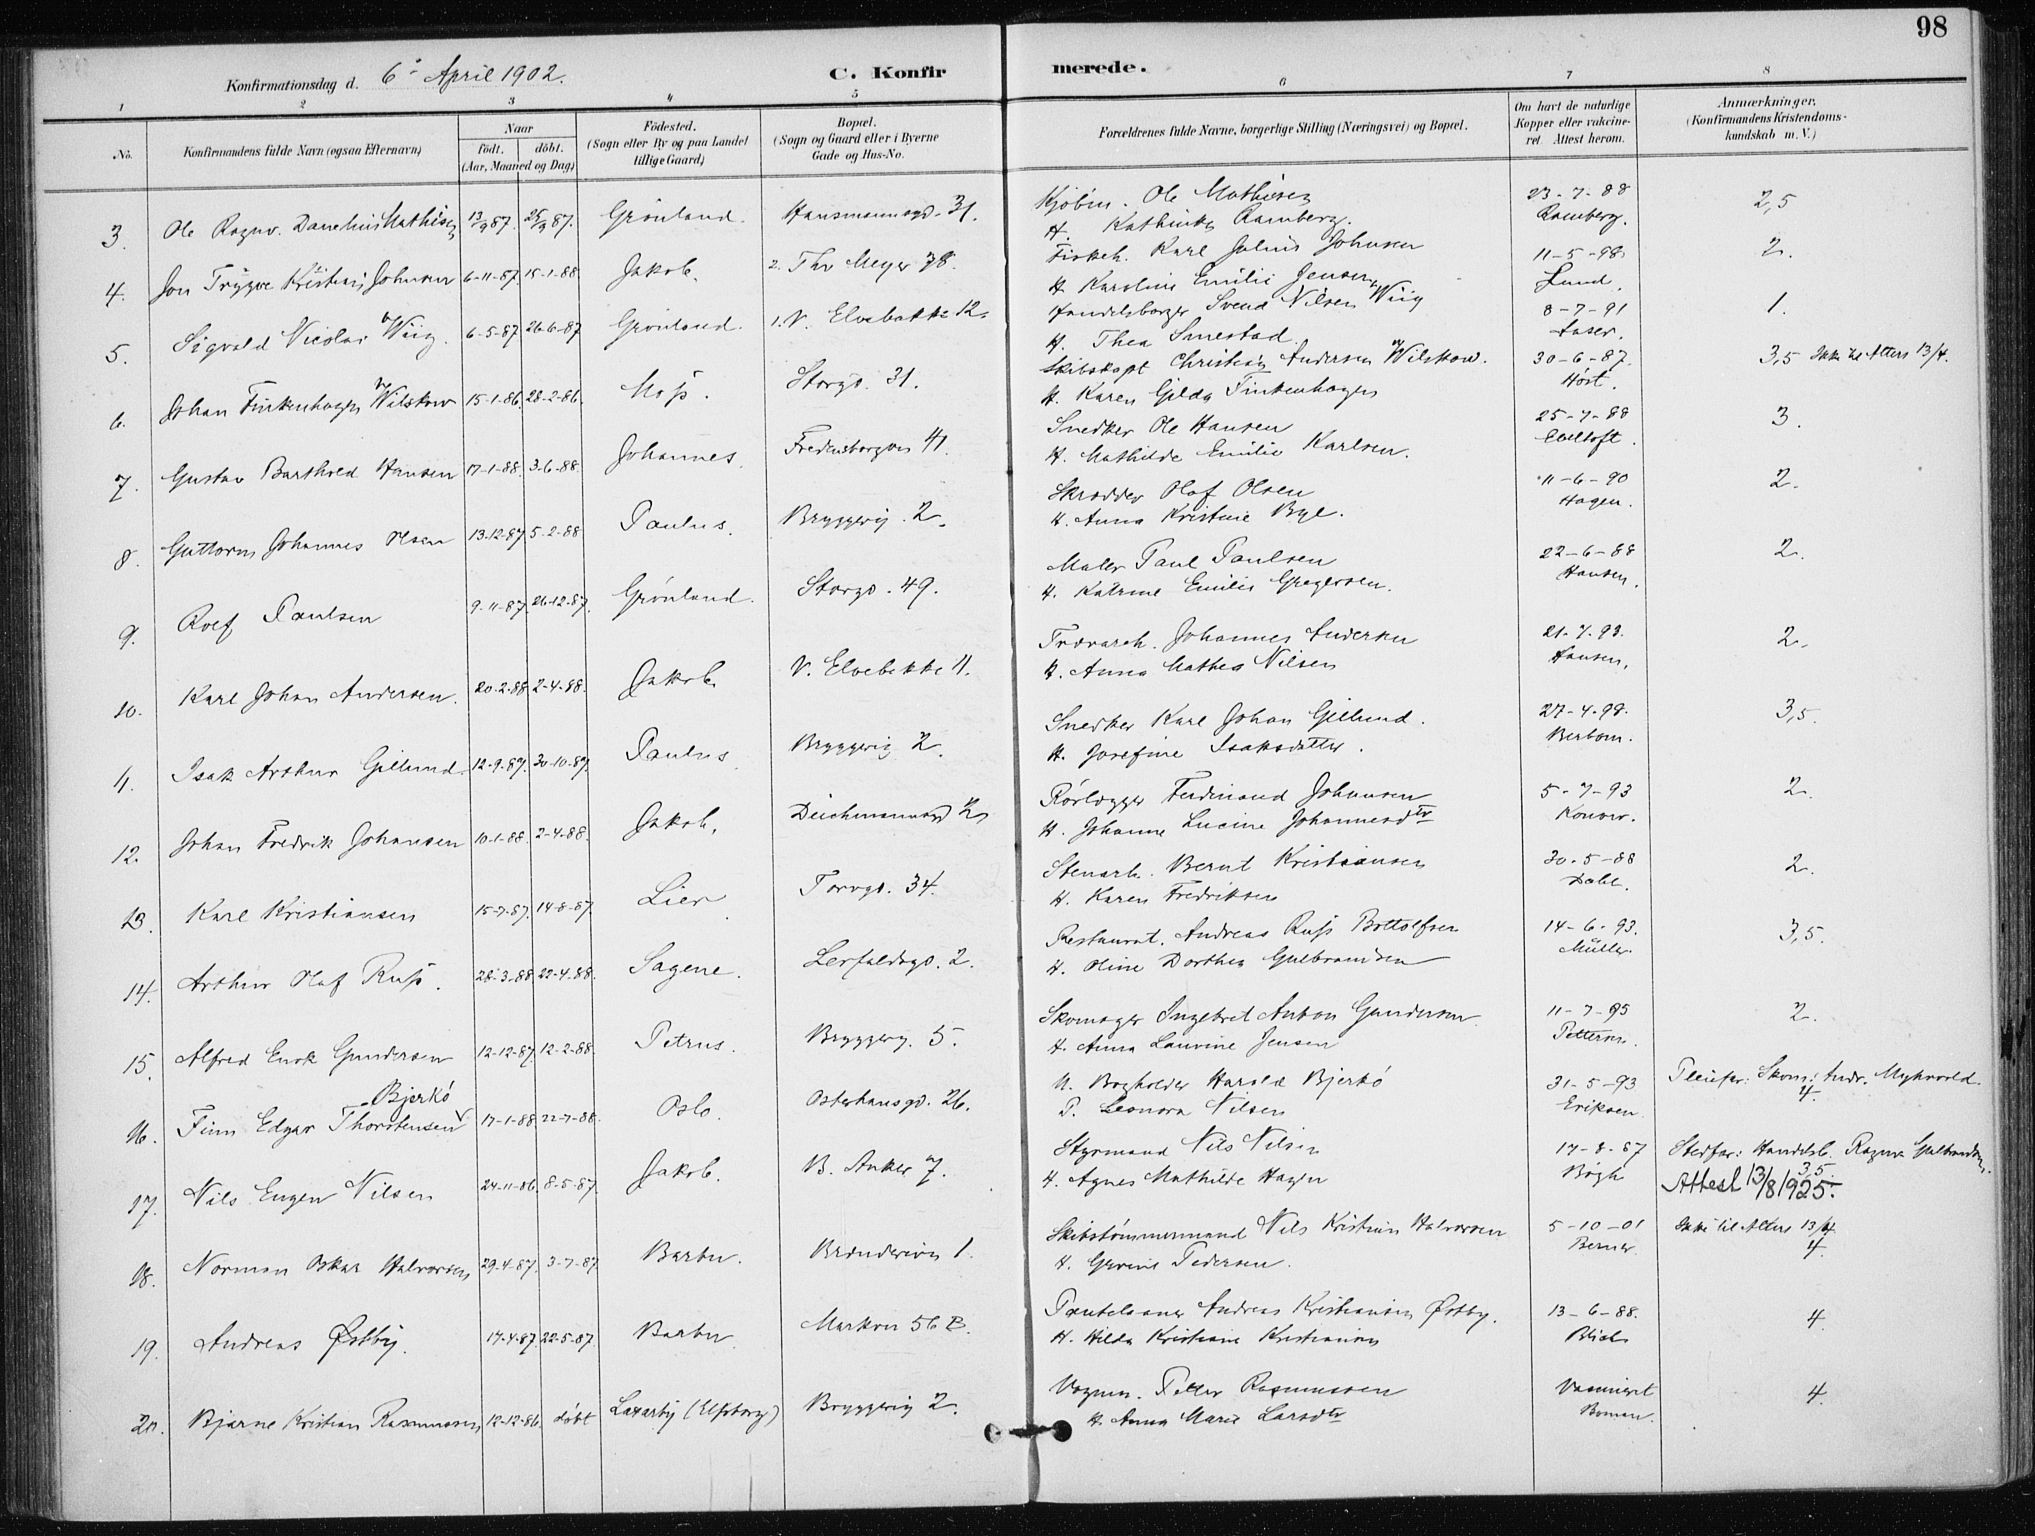 98
Konfirmationsdag d. 6te April 1902.
C. Konfirmerede.
1 2 3 4 5 6 7 8
No. Konfirmandens fulde Navn (ogsaa Efternavn) Naar født. døbt. (Aar, Maaned og Dag) Fødested. (Sogn eller By og paa Landet tillige Gaard) Bopæl. (Sogn og Gaard eller i Byerne Gade og Hus-No. Forældrenes fulde Navne, borgerlige Stilling (Næringsvei) og Bopæl. Om havt de naturlige Kopper eller vakcineret. Attest herom. Anmærkninger. (Konfirmandens Kristendomskundskab m. V.)
3. Ole Ragnv. Danelius Mathisen 13/9 87. 25/9 87. Grønland. Hausmannsgd. 31. Kjøbm. Ole Mathisen 23-7-88 2,5
H. Kathinka Ramberg. Ramberg.
4. Jon Trygve Kristian Johnsen 6-11-87 15-1-88 Jakob. 2. Thv Meyer 78. Fiskeh. Karl Julius Johnsen 11-5-98 2.
H. Karoline Emilie Jensen Lund.
5. Sigvald Nicolai Wiig. 6-5-87 26-6-87 Grønland. 1. V. Elvebakke 12. Handelsborger Svend Nilsen Wiig 8-7-91 1.
H. Thea Smestad. Aaser.
6. Johan Finkenhagen Wilskow 15-1-86. 28-2-86. Moss. Storgd. 31. Skibskapt Christian Andersen Wilskow. 30-6-87. 3,5 Ikke til Alters 13/4.
H. Karen Gilda Finkenhagen Høst.
7. Gustav Barthold Hansen 17-1-88. 3-6-88. Johannes. Fredensborgvn 41. Snedker Ole Hansen 25-7-88 3.
H. Mathilde Emilie Karlsen. Ebeltoft.
8. Guttorm Johannes Olsen 13-12-87 5-2-88 Paulus. Bryggerig. 2. Skrædder Olaf Olsen 11-6-90 2.
H. Anna Kristine Bye. Hagen.
9. Rolf Paulsen 9-11-87 26-12-87. Grønland. Storgd. 49. Maler Paul Paulsen 22-6-88 2.
H. Katrine Emilie Gregersen. Hansen.
10. Karl Johan Andersen. 20-2-88 2-4-88. Jakob. V. Elvebakke 11. Trævarch. Johannes Andersen 21-7-93. 2.
H. Anna Mathea Nilsen Hansen.
11. Isak Arthur Gillund. 12-9-87. 30-10-87. Paulus Bryggerig 2. Snedker Karl Johan Gillund. 27-4-98. 3,5.
H. Josefine Isaksdatter. Berbom.
12. Johan Fredrik Johansen 10-1-88. 2-4-88. Jakob. Deichmannsgd Rørlægger Ferdinand Johansen 5-7-93 2.
H. Johanne Lucine Johannesdtr
13. Karl Kristiansen 15-7-87. 14-8-87. Lier Torvgd. 34. Stenarb. Bernt Kristiansen 30-5-88 2.
H. Karen Fredriksen Dahl.
14. Arthur Olaf Russ. 28-3-88 22-4-88. Sagene. Lerfaldsgd. 2. Restaurat. Andreas Russ Bottolfsen 14-6-93. 3,5.
H. Oline Dorthea Gulbrandsen Müller
15. Alfred Enok Gundersen 12-12-87. 12-2-88. Petrus. Bryggerg. 5. Skomager Ingebret Anton Gundersen 11-7-95 2.
H. Anna Lauvine Jensen Pettersen.
16. Finn Edgar Bjerkø Thorstensen 17-1-88 22-7-88. Oslo. Osterhausgd. 26. U. Bogholder Harald Bjerkø 31-5-93 Pleiefar: Skom: Andr. Myhrvold.
P. Leonora Nilsen Eriksen 4.
17. Nils Eugen Nilsen 24-11-86. 8-5-87. Jakob. B. Anker 7. Styrmand Nils Nilsen 17-8-87 Stedfar: Handelsb. Ragnv. Gulbrandsen.
H. Agnes Mathilde Hagen Bøgh 3,5
Attest 13/8 1925.
18. Norman Oskar Halvorsen 29-4-87. 3-7-87 Barbu. Brønderiveien 1. Skibstømmermand Nils Kristian Halvorsen 5-10-01 Ikke til Alters 13/4.
H. Gurine Pedersen. Berner. 4.
19. Andreas Østby. 17-4-87. 22-5-87. Barbu Markvn 56 B. Pantelaaner Andreas Kristiansen Østby. 13-6-88. 4
H. Hilda Kristiane Kristiansen Blich
20. Bjarne Kristian Rasmussen 12-12-86. døbt Laxarby (Elfsborg) Bryggerig 2. Vognm. Petter Rasmussen Vaccineret 4.
H. Anna Marie Larsdtr Boman.